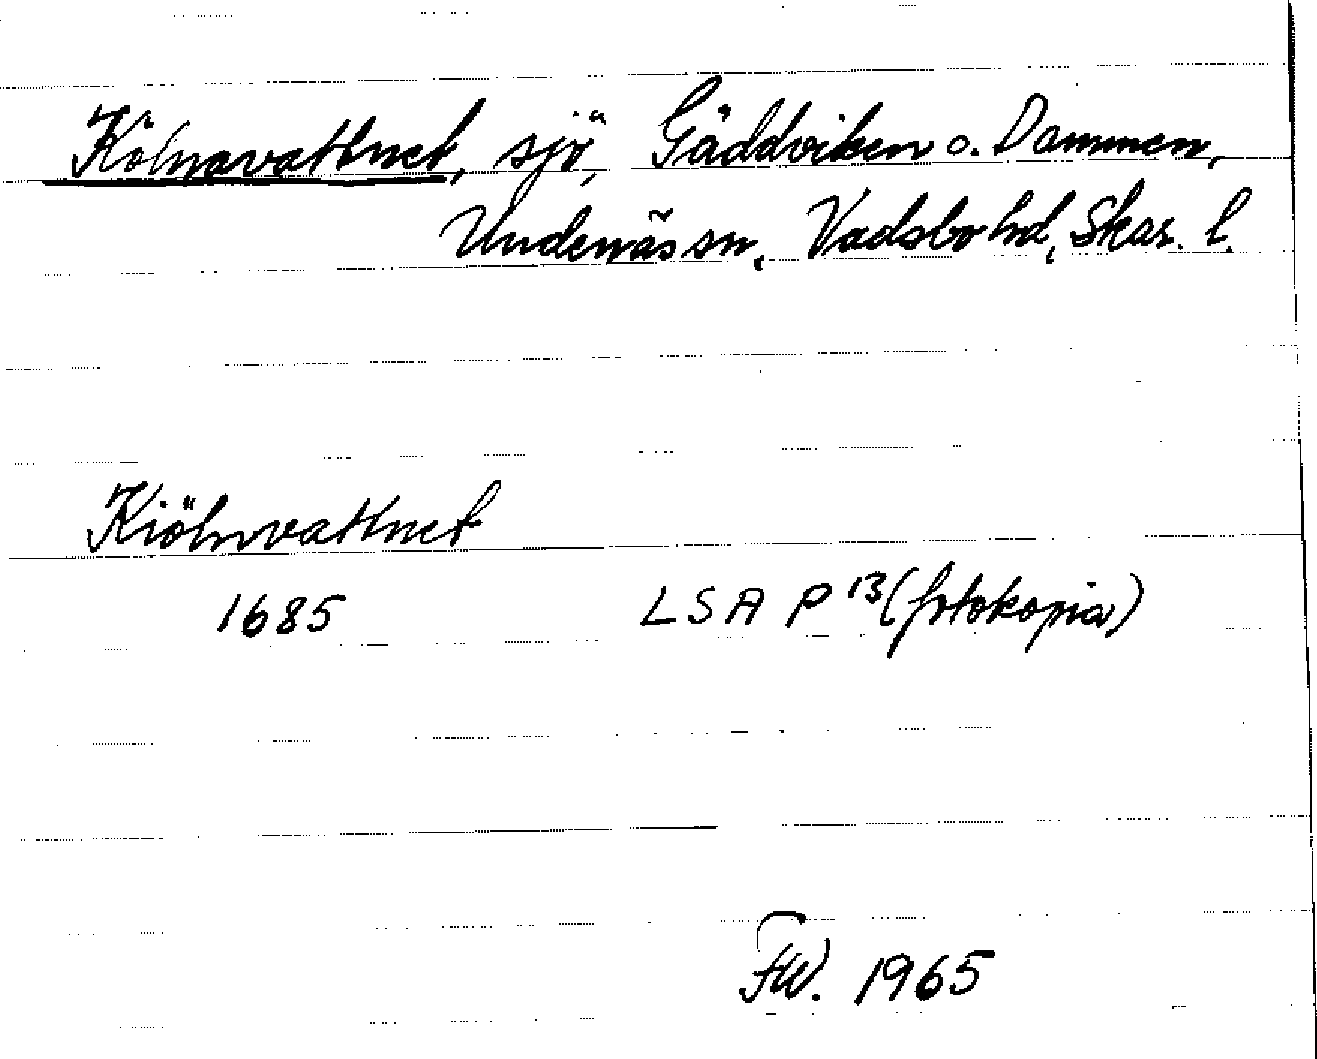 Kölnavattnet, sjö, Gäddviken o. Dammen,
Undenäs sn, Vadsbo hd, Skar. l.
Kiölnvattnet
1685 LSA P 13 (fotokopia)
FW. 1965